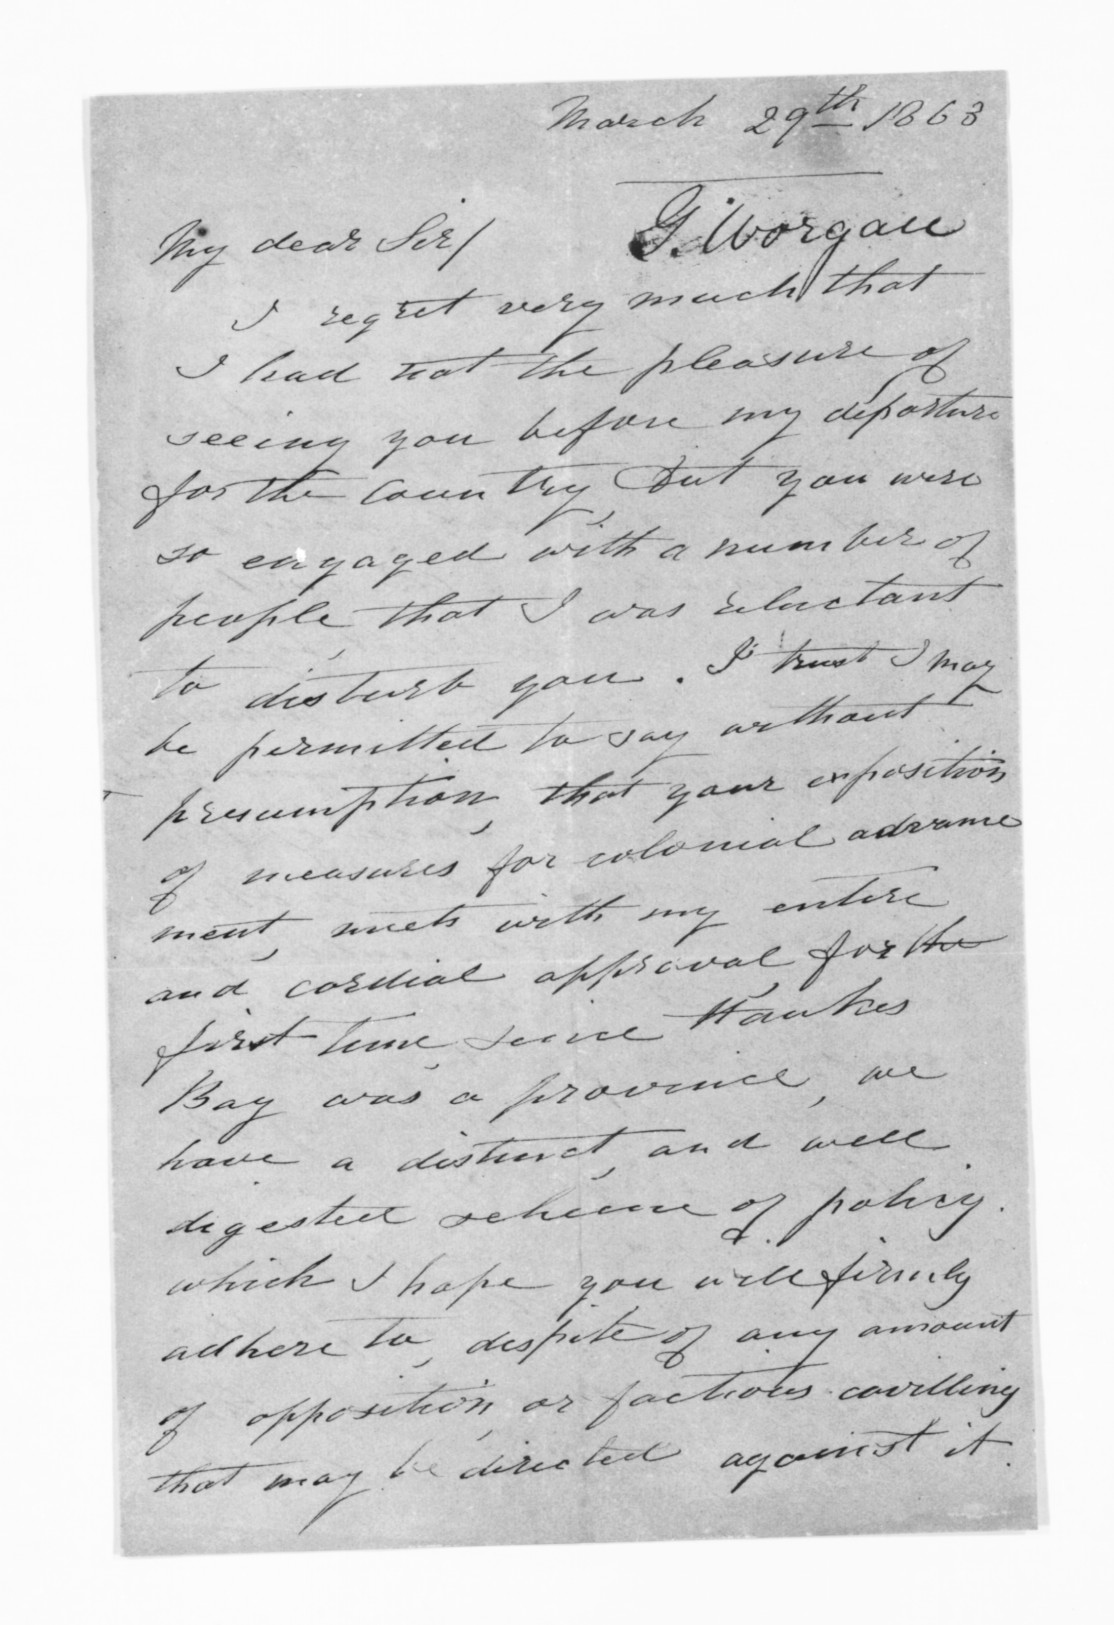 March 29th 1863
G. Worgan
My dear Sir/
I regret very much that
I had not the pleasure of
seeing you before my departure
for the country, but you were
so engaged with a number of
people, that I was reluctant
to disturb you. I trust I may
be permitted to say without
presumption, that your exposition
of measures for colonial advance
ment, meets with my entire
and cordial approval, for the
first time since Hawkes
Bay was a province, we
have a distinct, and well
digested scheme of policy.
which I hope you will firmly
adhere to, despite of any amount
of opposition, or factious cavilling
that may be directed against it.